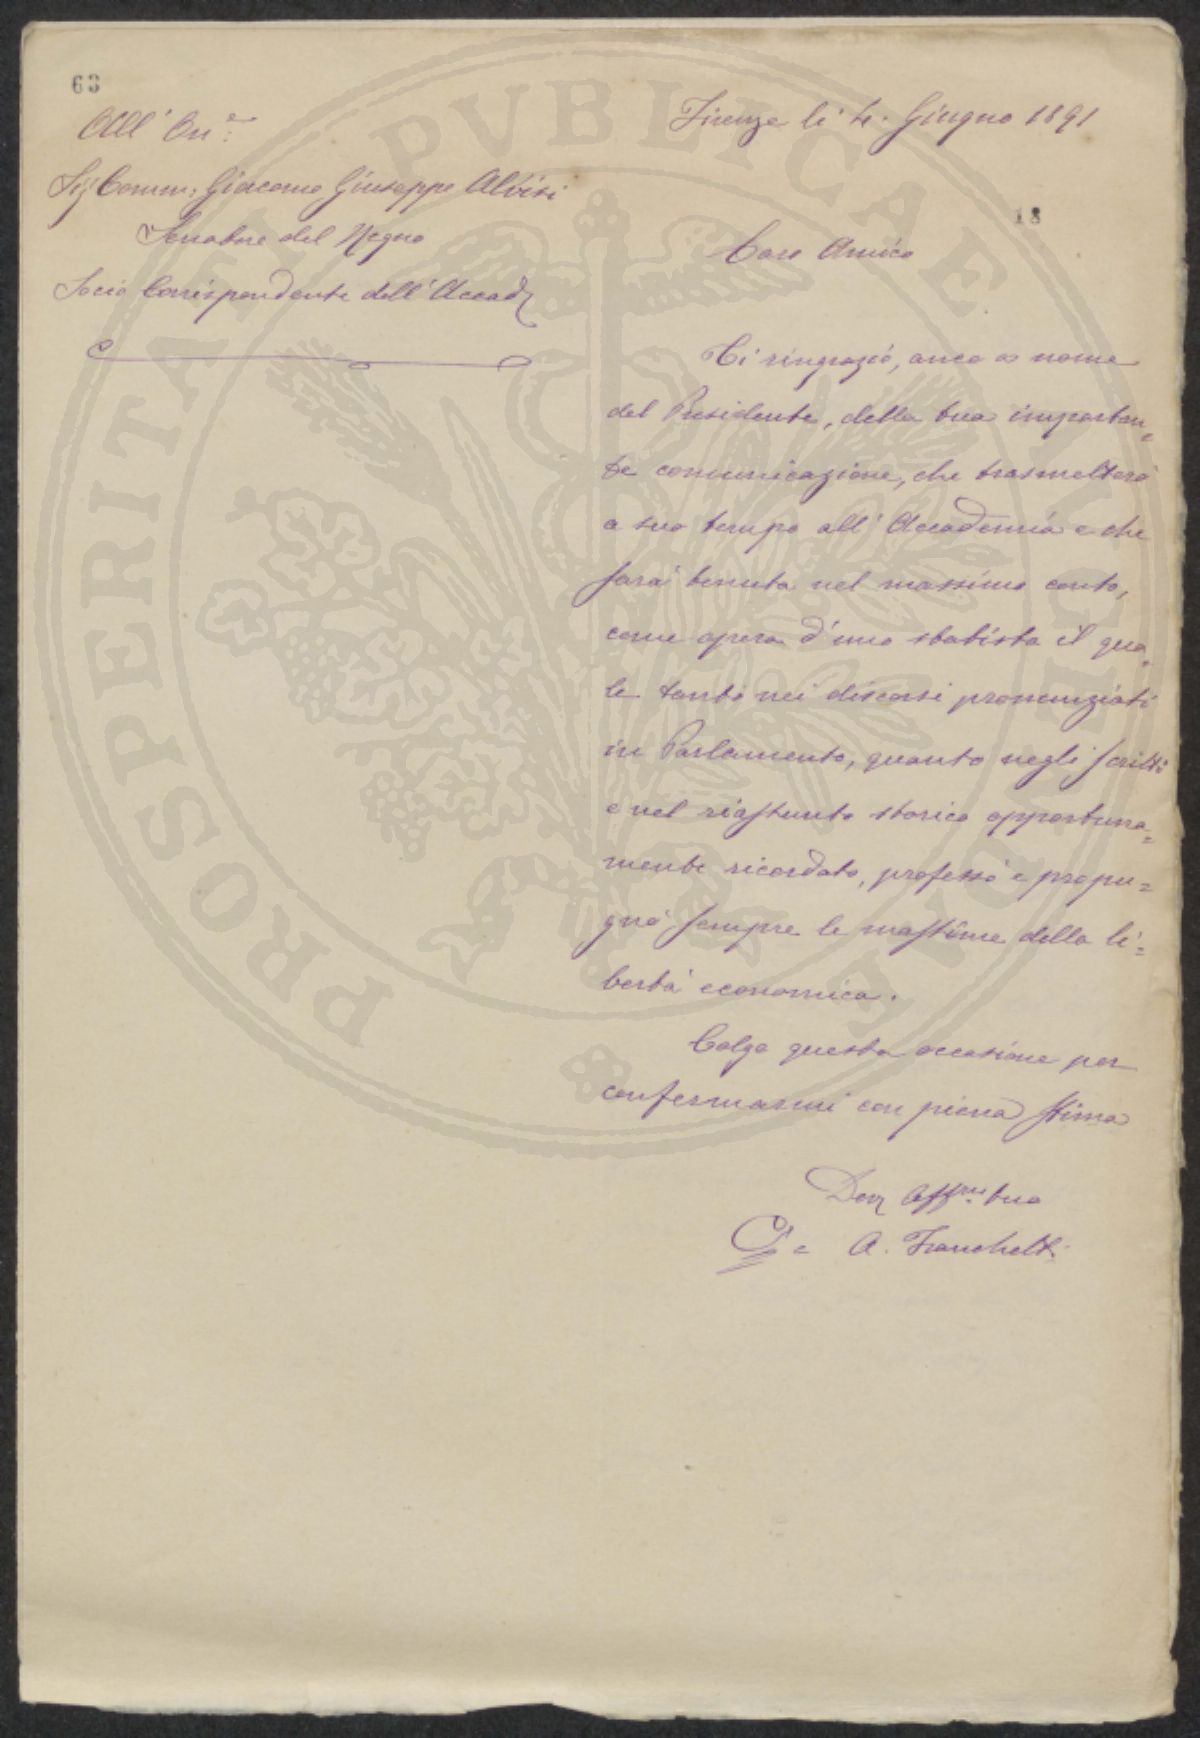 63
All' On.e
Sig Comm: Giacomo Giuseppe Alvisi
Senatore del Regno
Socio Corrispondente dell'Accad
Firenze li 4. Giugno 1891
18
Caro Amico
Ti ringrazio, anco a nome
del Presidente, della tua importan=
te comunicazione, che trasmetterò
a suo tempo all'Accademia e che
sarà tenuta nel massimo conto,
come opera d'uno statista il qua=
le tanto nei discorsi pronunziati
in Parlamento, quanto negli scritti
e nel riassunto storico opportuna=
mente ricordato, professò e propu=
gnò sempre le massime della li=
bertà economica.
Colgo questa occasione per
confermarmi con piena stima
Dev Aff.mo tuo
A. Franchetti
PROSPERITATI PVBLICAE